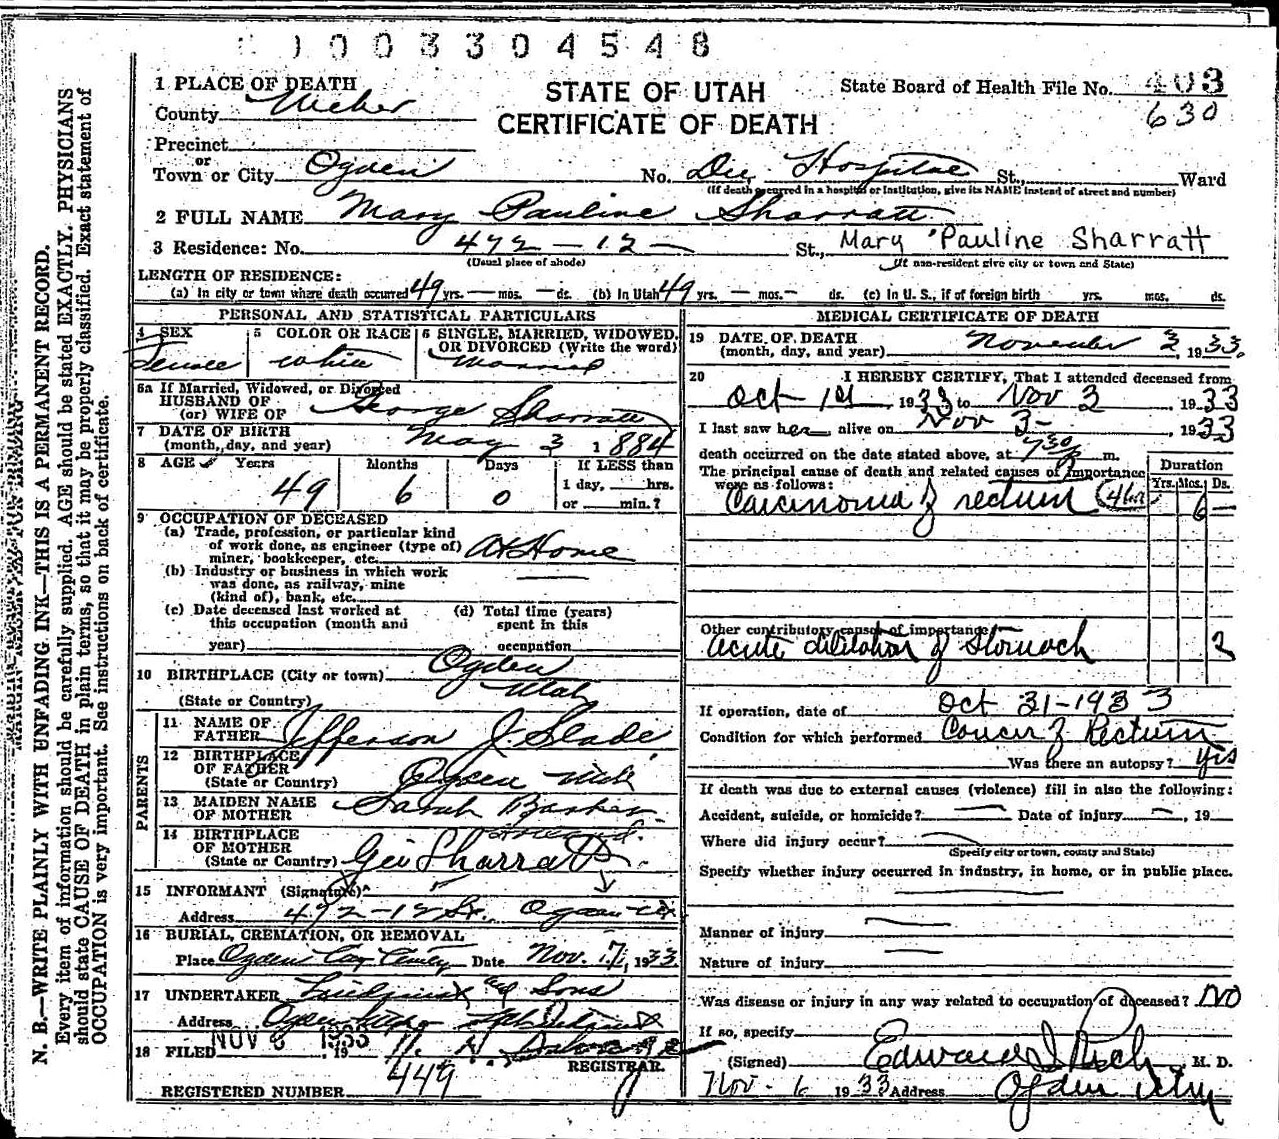 0 0 3 3 0 4 5 4 8
N. B.—WRITE PLAINLY WITH UNFADING INK—THIS IS A PERMANENT RECORD.
Every item of information should be carefully supplied. AGE should be stated EXACTLY. PHYSICIANS
should state CAUSE OF DEATH in plain terms, so that it may be properly classified. Exact statement of
OCCUPATION is very important. See instructions on back of certificate.
STATE OF UTAH
CERTIFICATE OF DEATH
State Board of Health File No. 403
630
1 PLACE OF DEATH
County Weber
Precinct
or
Town or City Ogden No. Dee Hospital St., Ward
(If death occurred in a hospital or institution, give its NAME instead of street and number)
2 FULL NAME Mary Pauline Sharratt
3 Residence: No. 472 - 12 - St., Mary Pauline Sharratt
(Usual place of abode) (If non-resident give city or town and State)
LENGTH OF RESIDENCE:
(a) In city or town where death occurred 49 yrs. — mos. — ds. (b) In Utah 49 yrs. — mos. — ds. (c) In U. S., if of foreign birth yrs. mos. ds.
PERSONAL AND STATISTICAL PARTICULARS
4 SEX Female
5 COLOR OR RACE white
6 SINGLE, MARRIED, WIDOWED,
OR DIVORCED (Write the word)
Married
6a If Married, Widowed, or Divorced
HUSBAND OF
(or) WIFE OF George Sharratt
7 DATE OF BIRTH
(month, day, and year) May 3 1884
8 AGE Years Months Days If LESS than
49 6 0 1 day, hrs.
or min.?
9 OCCUPATION OF DECEASED
(a) Trade, profession, or particular kind
of work done, as engineer (type of)
miner, bookkeeper, etc. At Home
(b) Industry or business in which work
was done, as railway, mine
(kind of), bank, etc.
(c) Date deceased last worked at
this occupation (month and
year)
(d) Total time (years)
spent in this
occupation
10 BIRTHPLACE (City or town) Ogden
(State or Country) Utah
PARENTS
11 NAME OF
FATHER Jefferson J. Slade
12 BIRTHPLACE
OF FATHER
(State or Country) Ogden Utah
13 MAIDEN NAME
OF MOTHER Sarah Barker
14 BIRTHPLACE
OF MOTHER
(State or Country)
Geo Sharratt
15 INFORMANT (Signature)
Address 472-12 St. Ogden
16 BURIAL, CREMATION, OR REMOVAL
Place Ogden City Cemetery Date Nov. 7, 1933
17 UNDERTAKER Lindquist and Sons
Address Ogden Utah
18 FILED NOV 8 1933, 19
REGISTRAR.
REGISTERED NUMBER 449
MEDICAL CERTIFICATE OF DEATH
19 DATE OF DEATH
(month, day, and year) November 3, 1933.
20 I HEREBY CERTIFY, That I attended deceased from
Oct 1st 1933 to Nov 3, 1933
I last saw her alive on Nov 3-, 1933
death occurred on the date stated above, at 730 p m.
The principal cause of death and related causes of importance
were as follows:
Duration
Yrs. Mos. Ds.
Carcinoma of rectum 6 —
Other contributory causes of importance
Acute dilitation of stomach 2
If operation, date of Oct 31-1933
Condition for which performed Cancer of Rectum
Was there an autopsy? yes
If death was due to external causes (violence) fill in also the following:
Accident, suicide, or homicide? — Date of injury —, 19
Where did injury occur? —
(Specify city or town, county and State)
Specify whether injury occurred in industry, in home, or in public place.
Manner of injury —
Nature of injury —
Was disease or injury in any way related to occupation of deceased? No
If so, specify
(Signed) Edward I Rich M. D.
Nov - 6 1933 Address Ogden Utah